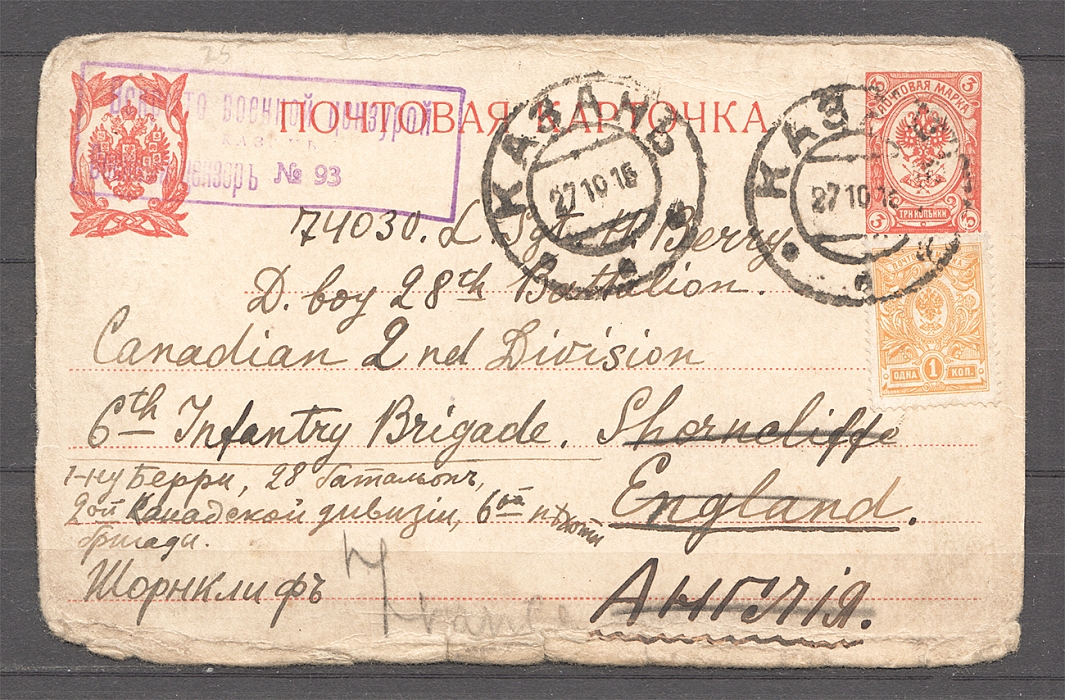 25
Вскрыто военной цензурой
КАЗАНЬ
Военный цензоръ № 93
ПОЧТОВАЯ КАРТОЧКА
КАЗАНЬ
27 10 15
КАЗ
27 10 15
3 ПОЧТОВАЯ МАРКА 3
3 ТРИ КОПѢЙКИ 3
ОДНА 1 КОП.
74030. L. Sgt. H. Berry
D. boy 28th Battalion.
Canadian 2nd Division
6th Infantry Brigade. Shorncliffe
г-ну Берри, 28 баталіонъ,
2ой Канадской дивизіи, 6ой пѣхотн
England.
бригады.
Шорнклифъ
France
Англія.